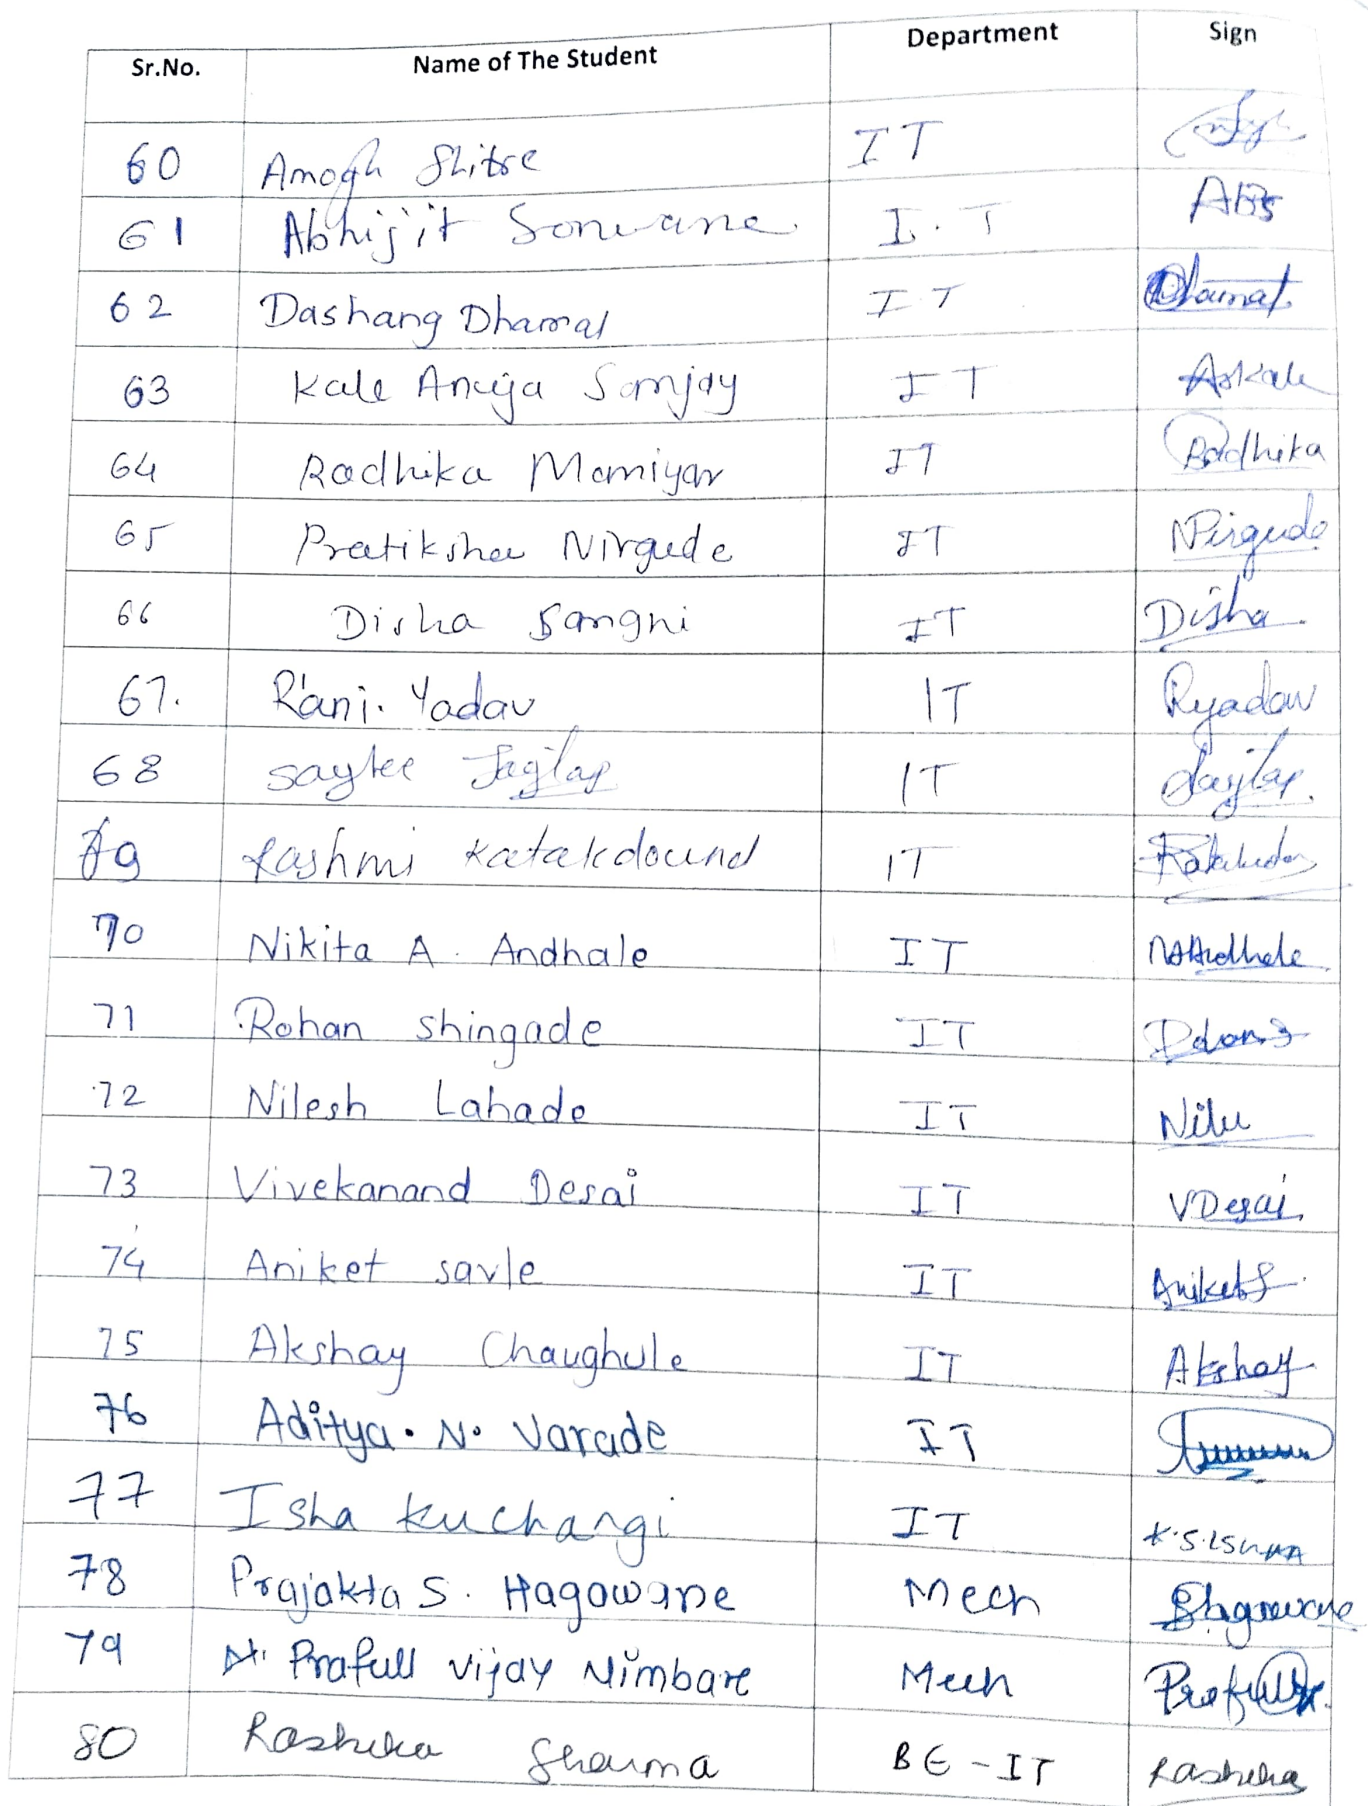 Sr.No. Name of The Student Department Sign
60 Amogh Shitre IT
61 Abhijit Sonwane. I.T ABS
62 Dashang Dhamal IT Dhamal
63 Kale Anuja Sanjay IT Askale
64 Radhika Maniyar IT Radhika
65 Pratiksha Nirgude IT Nirgude
66 Disha Sangni IT Disha.
67. Rani. Yadav IT Ryadav
68 Saylee Jagtap IT Jagtap.
69 Rashmi Katakdound IT
70 Nikita A. Andhale IT NAAndhale
71 Rohan Shingade IT
72 Nilesh Lahade IT Nilu
73 Vivekanand Desai IT VDesai.
74 Aniket savle IT AniketS.
75 Akshay Chaughule IT Akshay
76 Aditya. N. Varade IT
77 Isha Kuchangi IT
78 Prajakta S. Hagawane Mech
79 Prafull vijay Nimbare Mech Prafull
80 Rashika Sharma BE-IT Rashika